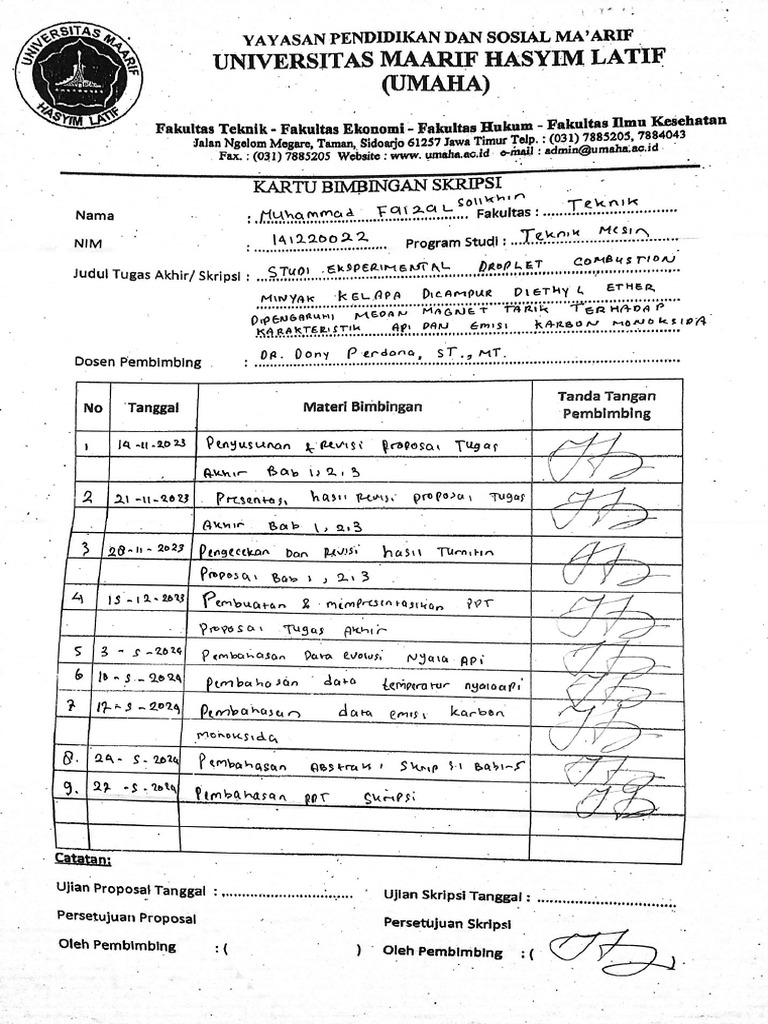 UNIVERSITAS MAARIF
HASYIM LATIF
YAYASAN PENDIDIKAN DAN SOSIAL MA'ARIF
UNIVERSITAS MAARIF HASYIM LATIF
(UMAHA)
Fakultas Teknik - Fakultas Ekonomi - Fakultas Hukum - Fakultas Ilmu Kesehatan
Jalan Ngelom Megare, Taman, Sidoarjo 61257 Jawa Timur Telp. : (031) 7885205, 7884043
Fax. : (031) 7885205 Website : www. umaha.ac.id e-mail : admin@umaha.ac.id
KARTU BIMBINGAN SKRIPSI
Nama : Muhammad Faizal Solikhin Fakultas : Teknik
NIM : 141220022 Program Studi : Teknik Mesin
Judul Tugas Akhir/ Skripsi : STUDI EKSPERIMENTAL DROPLET COMBUSTION
MINYAK KELAPA DICAMPUR DIETHYL ETHER
DIPENGARUHI MEDAN MAGNET TARIK TERHADAP
KARAKTERISTIK API DAN EMISI KARBON MONOKSIDA
Dosen Pembimbing : DR. Dony Perdana, ST., MT.
No Tanggal Materi Bimbingan Tanda Tangan Pembimbing
1 14-11-2023 Penyusunan & Revisi Proposal Tugas
Akhir Bab 1, 2, 3
2 21-11-2023 Presentasi hasil Revisi proposal Tugas
Akhir Bab 1, 2, 3
3 28-11-2023 Pengecekan Dan Revisi hasil Turnitin
Proposal Bab 1, 2, 3
4 15-12-2023 Pembuatan & mempresentasikan PPT
Proposal Tugas Akhir
5 3-5-2024 Pembahasan Data evolusi Nyala Api
6 10-5-2024 Pembahasan data temperatur nyala api
7 17-5-2024 Pembahasan data emisi karbon
monoksida
8. 24-5-2024 Pembahasan Abstrak, Skripsi Bab 1-5
9. 27-5-2024 Pembahasan PPT Skripsi
Catatan:
Ujian Proposal Tanggal : Ujian Skripsi Tanggal :
Persetujuan Proposal Persetujuan Skripsi
Oleh Pembimbing : ( ) Oleh Pembimbing : ( )